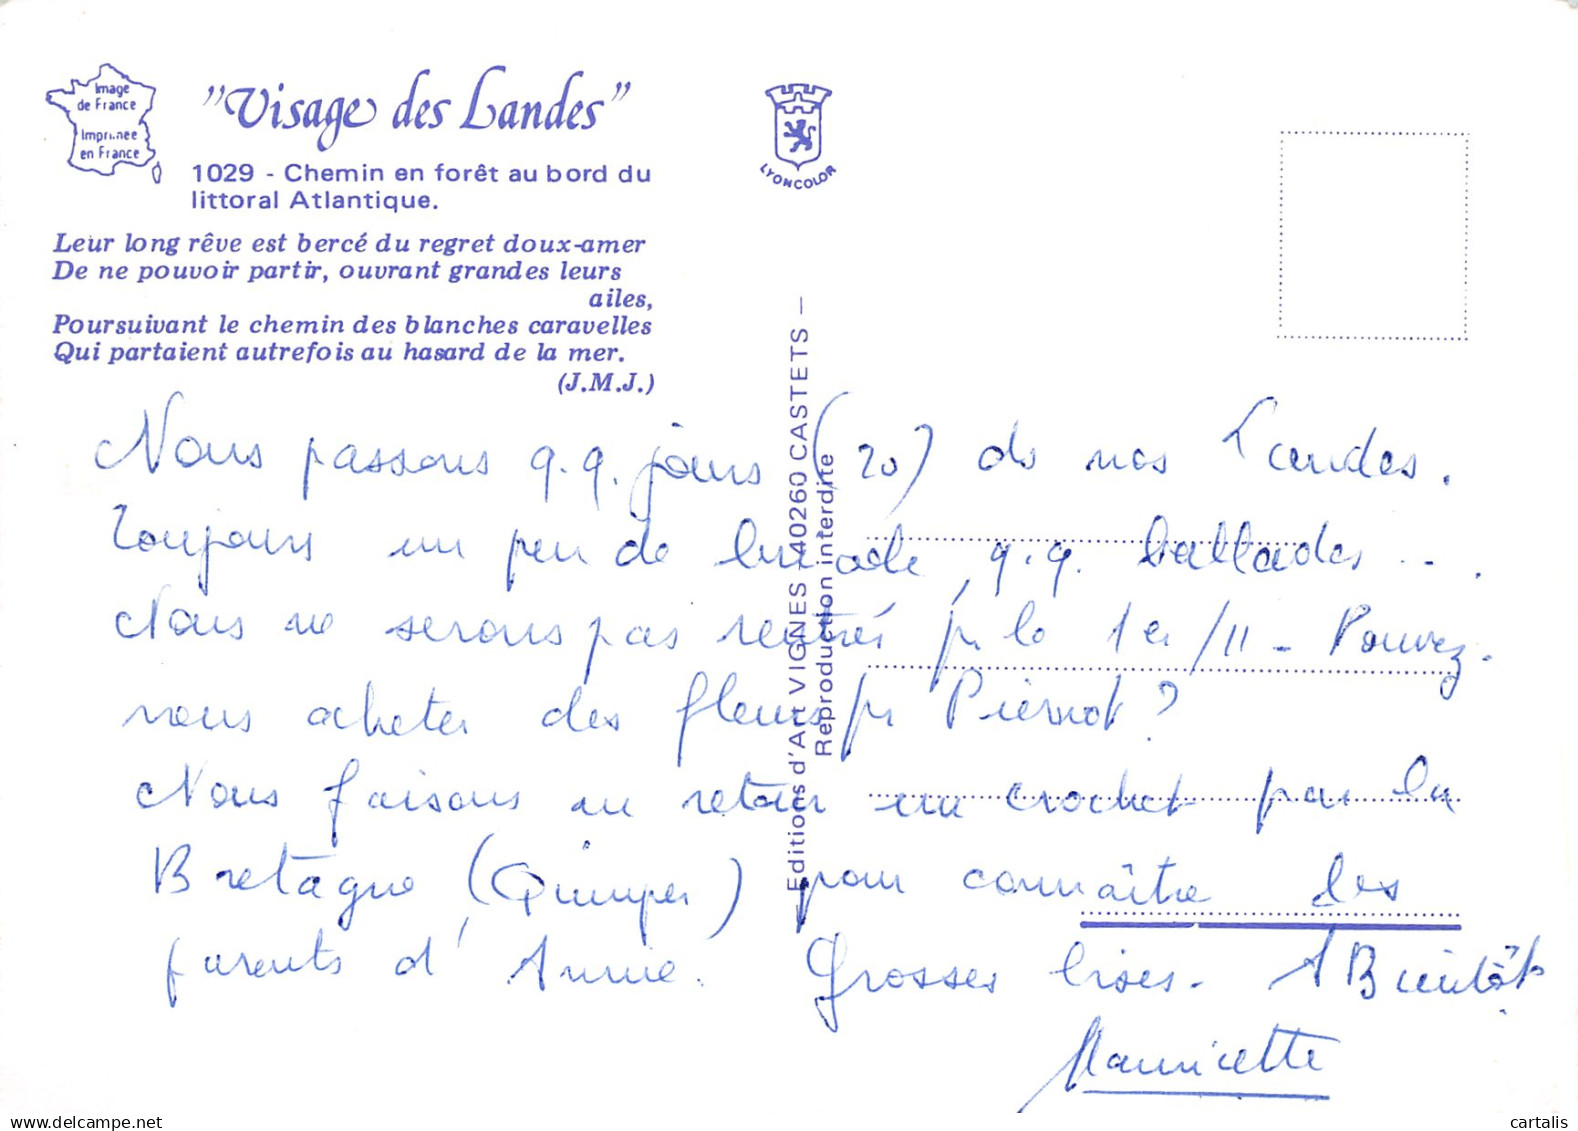 Image
de France
Imprimée
en France
"Visage des Landes"
1029 - Chemin en forêt au bord du
littoral Atlantique.
Leur long rêve est bercé du regret doux-amer
De ne pouvoir partir, ouvrant grandes leurs
ailes,
Poursuivant le chemin des blanches caravelles
Qui partaient autrefois au hasard de la mer.
(J.M.J.)
LYONCOLOR
Editions d'Art VIGNES - 40260 CASTETS -
Reproduction interdite
Nous passons q.q. jours (20) ds nos Landes.
Toujours un peu de , q.q. ballades ...
Nous ne serons pas rentrés pr le 1er/11 - Pouvez-
vous acheter des fleurs pr Pierrot ?
Nous faisons au retour un crochet par la
Bretagne (Quimper) pour connaître les
parents d'Annie. Grosses bises. A Bientôt
Mauricette
cartalis